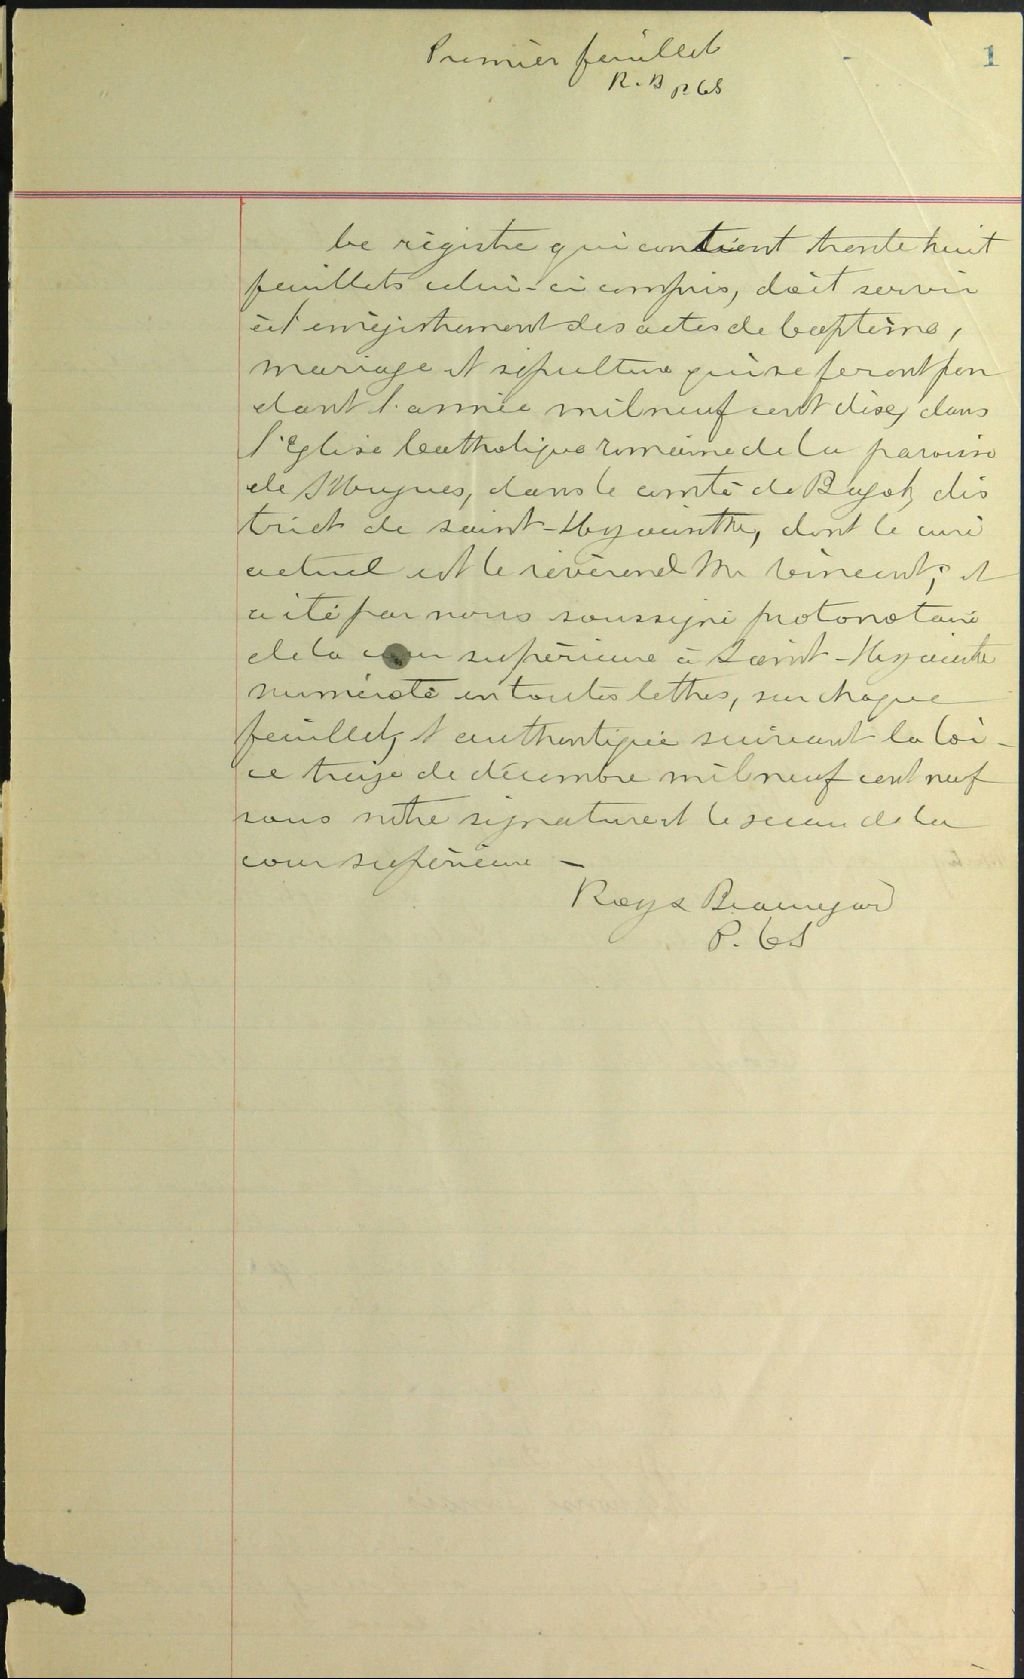 Premier feuillet
1
R. B P. CS
Ce régistre qui contient trente huit
feuillets celui-ci compris, doit servir
à l'enrégistrement des actes de baptême,
mariage et sépulture qui se feront pen
dant l'année mil neuf cent dix, dans
l'Eglise Catholique romaine de la paroisse
de St Hugues, dans le comté de Bagot, dis
trict de saint-Hyacinthe, dont le curé
actuel est le révérend Mr Vincent; et
a été par nous soussigné protonotaire
de la cour supérieure à Saint-Hyacinthe
numéroté en toutes lettres, sur chaque
feuillet, et authentiquée suivant la loi -
ce treize de décembre mil neuf cent neuf
sous notre signature et le sceau de la
cour supérieure -
Roy & Beauregard
P. CS